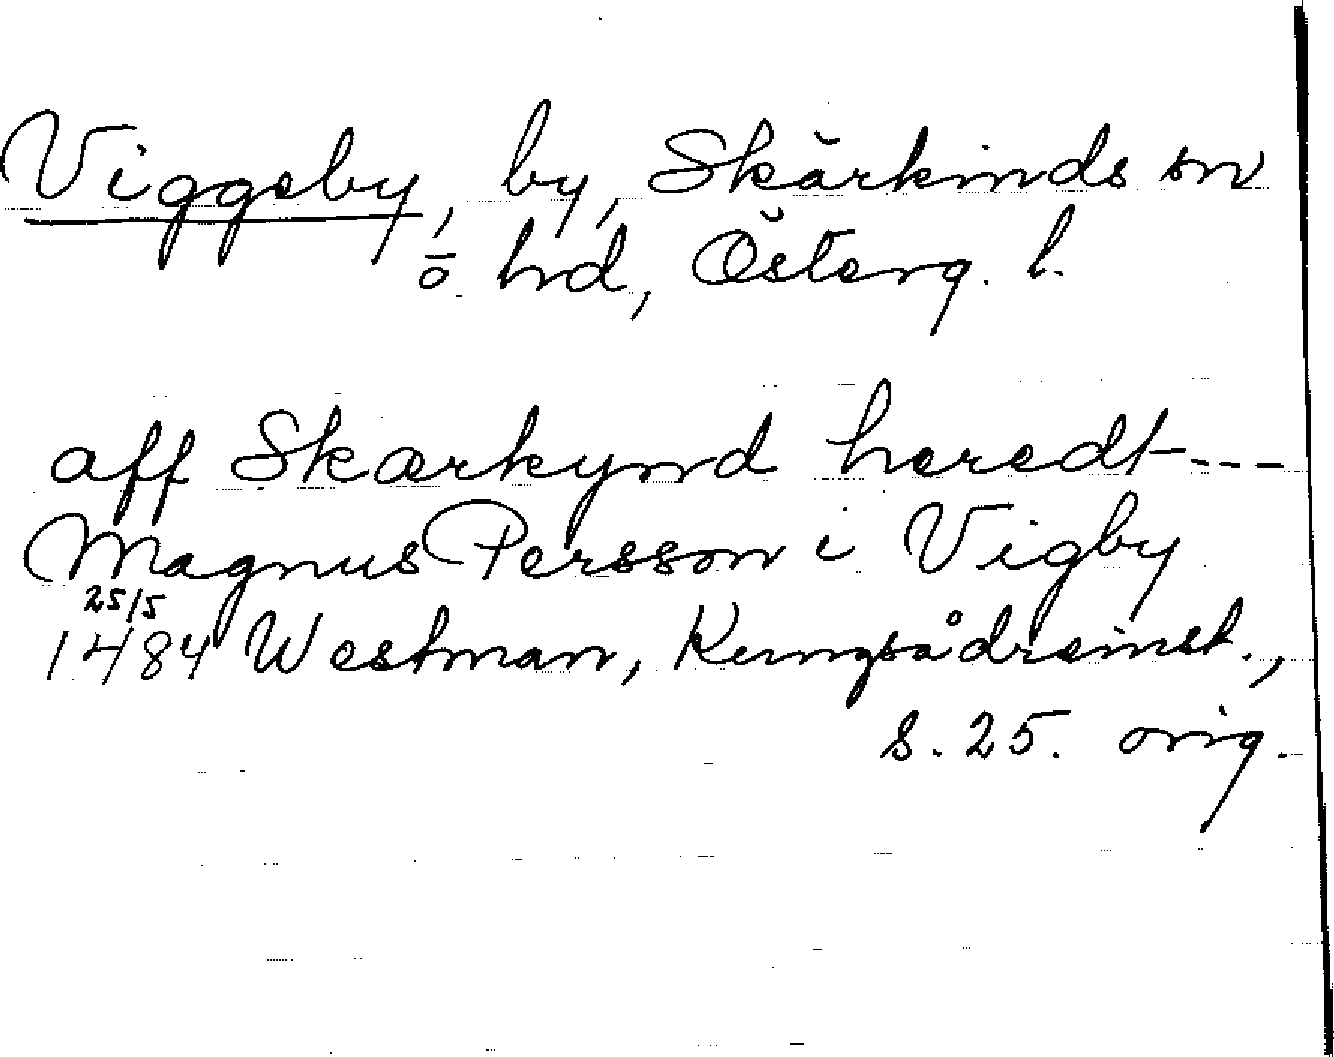 Viggsby, by, Skärkinds sn
o hd, Österg. l.
aff Skærkynd heredt---
Magnus Persson i Vigby
25/5
1484 Westman, Kungsådreinst.,
s. 25. orig.